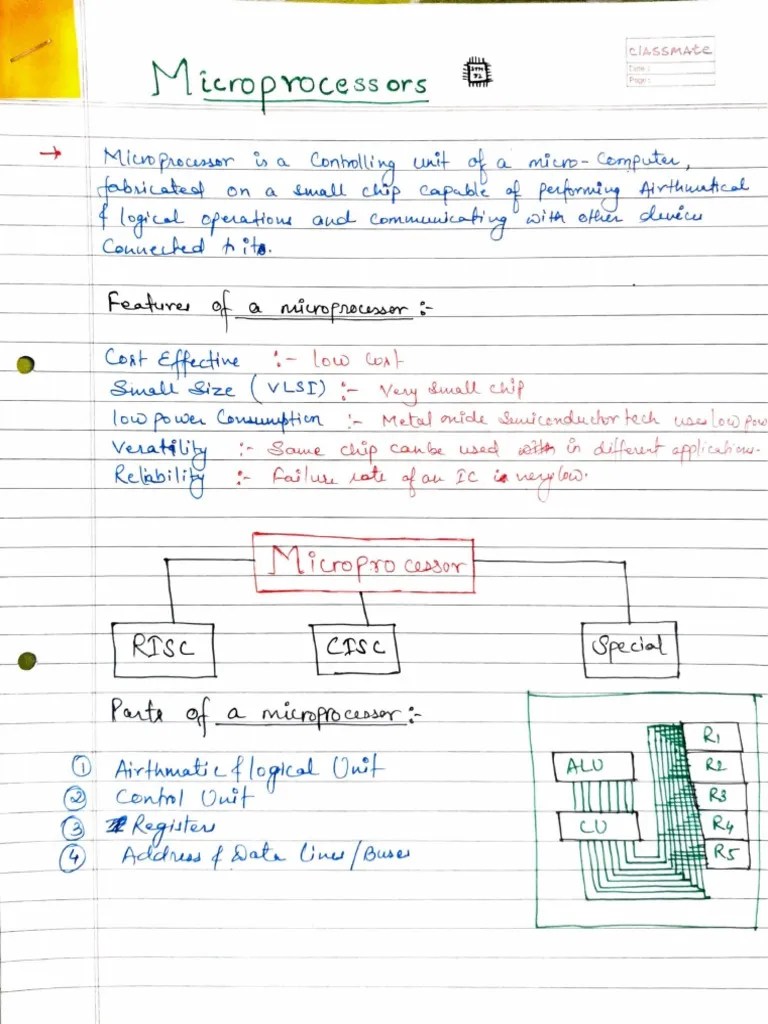 Microprocessors
classmate
Date :
Page :
→ Microprocessor is a Controlling unit of a micro-Computer,
fabricated on a small chip capable of performing Airthmatical
& logical operations and communicating with other devices
Connected to it.
Features of a microprocessor :-
Cost Effective :- low cost
Small Size (VLSI) :- Very small chip
low power Consumption :- Metal oxide Semiconductor tech uses low pow
Veratility :- Same chip can be used in different applications.
Reliability :- Failure rate of an IC is very low.
Microprocessor
RISC CISC Special
Parts of a microprocessor :-
① Airthmatic & logical Unit
② Control Unit
③ Registers
④ Address & Data lines/Buses
ALU
CU
R1
R2
R3
R4
R5